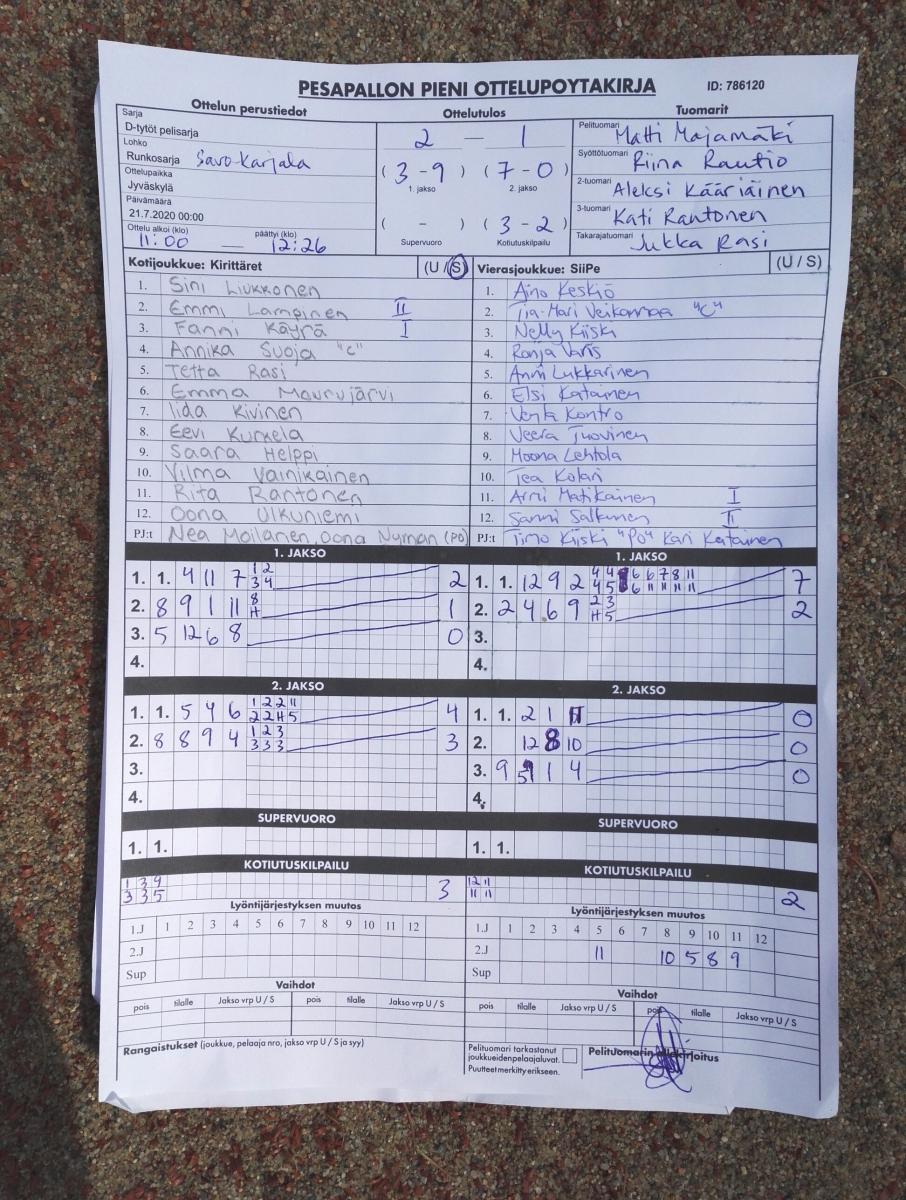 PESAPALLON PIENI OTTELUPOYTAKIRJA
ID: 786120
Ottelun perustiedot
Sarja
D-tytöt pelisarja
Lohko
Runkosarja Savo-Karjala
Ottelupaikka
Jyväskylä
Päivämäärä
21.7.2020 00:00
Ottelu alkoi (klo) päättyi (klo)
11:00 — 12:26
Ottelutulos
2 — 1
( 3 - 9 ) ( 7 - 0 )
1. jakso 2. jakso
( - ) ( 3 - 2 )
Supervuoro Kotiutuskilpailu
Tuomarit
Pelituomari Matti Majamäki
Syöttötuomari Riina Rautio
2-tuomari Aleksi Kääriäinen
3-tuomari Kati Rantonen
Takarajatuomari Jukka Rasi
Kotijoukkue: Kirittäret (U / S)
1. Sini Liukkonen
2. Emmi Lampinen II
3. Fanni Käyrä I
4. Annika Suoja "C"
5. Tetta Rasi
6. Emma Mourujärvi
7. Iida Kivinen
8. Eevi Kurkela
9. Saara Helppi
10. Vilma Vainikainen
11. Rita Rantonen
12. Oona Ulkuniemi
PJ:t Nea Moilanen, Oona Nyman (PO)
Vierasjoukkue: SiiPe (U / S)
1. Aino Keskiö
2. Tia-Mari "C"
3. Nelly Kiiski
4. Ronja Varis
5. Anni Lukkarinen
6. Elsi Katainen
7. Venla Kontro
8. Veera Tuovinen
9. Moona Lehtola
10. Tea Kolari
11. Anni Matikainen I
12. Sanni Salkunen II
PJ:t Timo Kiiski "PO" Kari Katainen
1. JAKSO
1. 1. 4 11 7 1 2 2
3 4
2. 8 9 1 11 8 1
H
3. 5 12 6 8 0
4.
1. JAKSO
1. 1. 12 9 2 4 4 6 6 7 8 11 7
4 5 6 11 11 11 11
2. 2 4 6 9 2 3 2
H 5
3.
4.
2. JAKSO
1. 1. 5 4 6 1 2 2 11 4
2 2 H 5
2. 8 8 9 4 1 2 3 3
3 3 3
3.
4.
2. JAKSO
1. 1. 2 1 0
2. 12 8 10 0
3. 9 1 4 0
4.
SUPERVUORO
1. 1.
SUPERVUORO
1. 1.
KOTIUTUSKILPAILU
1 3 4 3
3 3 5
KOTIUTUSKILPAILU
12 11 2
11 11
Lyöntijärjestyksen muutos
1.J 1 2 3 4 5 6 7 8 9 10 11 12
2.J
Sup
Lyöntijärjestyksen muutos
1.J 1 2 3 4 5 6 7 8 9 10 11 12
2.J 11 10 5 8 9
Sup
Vaihdot
pois tilalle Jakso vrp U / S pois tilalle Jakso vrp U / S
Vaihdot
pois tilalle Jakso vrp U / S pois tilalle Jakso vrp U / S
Rangaistukset (joukkue, pelaaja nro, jakso vrp U / S ja syy)
Pelituomari tarkastanut
joukkueiden pelaajaluvat.
Puutteet merkitty erikseen.
Pelituomarin allekirjoitus